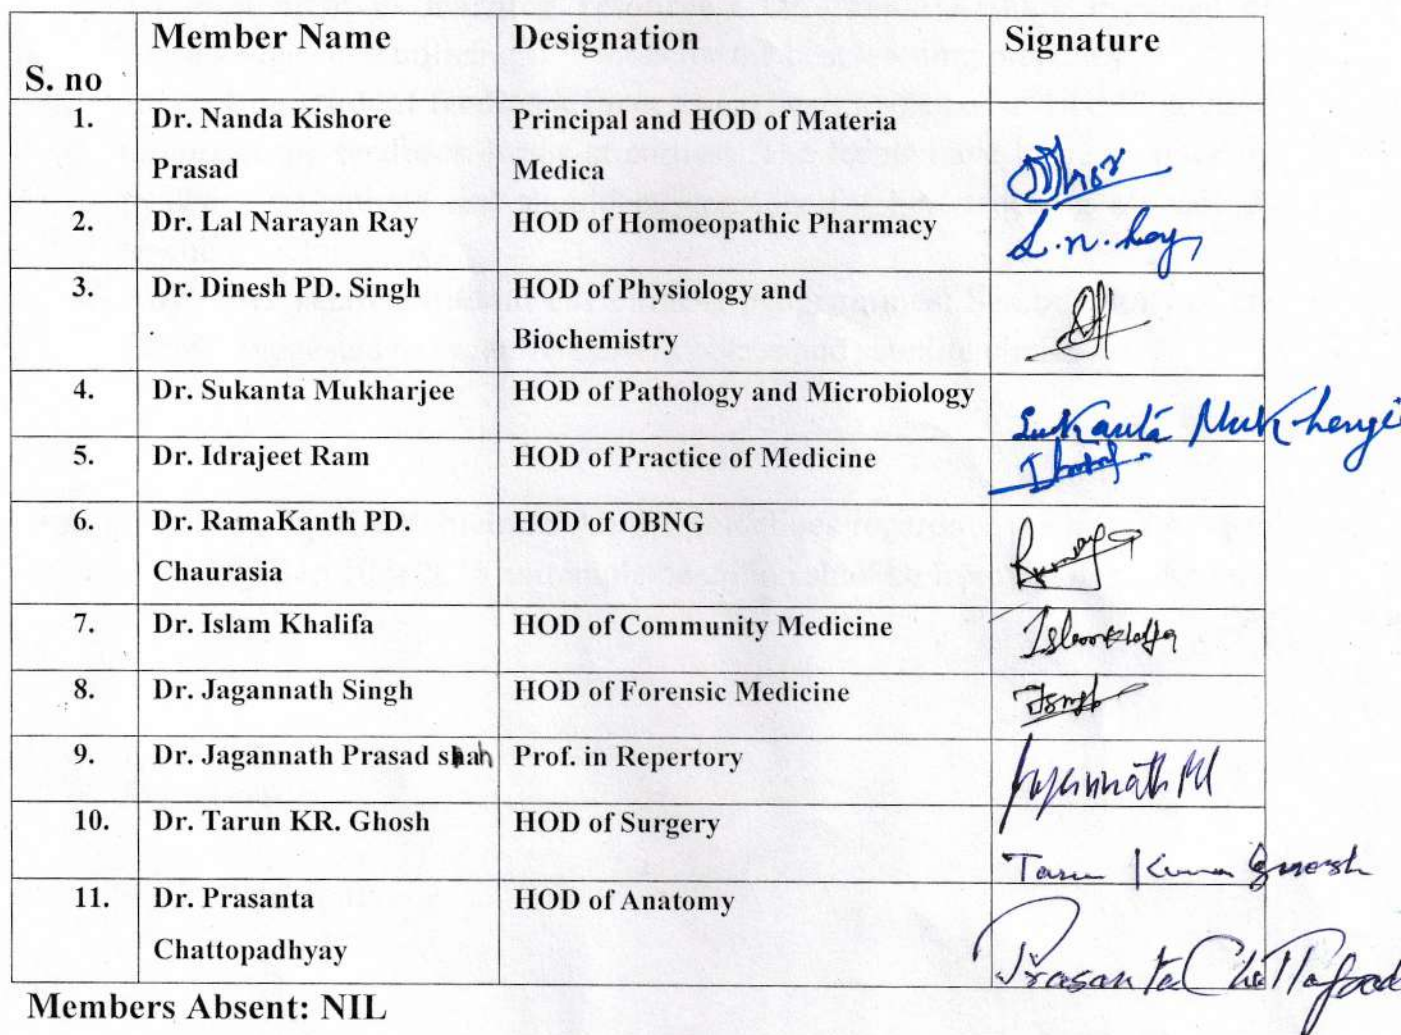 Member Name Designation Signature
S. no
1. Dr. Nanda Kishore Principal and HOD of Materia
Prasad Medica
2. Dr. Lal Narayan Ray HOD of Homoeopathic Pharmacy
L.n.Roy
3. Dr. Dinesh PD. Singh HOD of Physiology and
Biochemistry
4. Dr. Sukanta Mukharjee HOD of Pathology and Microbiology
Sukanta Mukherji
5. Dr. Idrajeet Ram HOD of Practice of Medicine
6. Dr. RamaKanth PD. HOD of OBNG
Chaurasia
7. Dr. Islam Khalifa HOD of Community Medicine
8. Dr. Jagannath Singh HOD of Forensic Medicine
9. Dr. Jagannath Prasad shah Prof. in Repertory
10. Dr. Tarun KR. Ghosh HOD of Surgery
11. Dr. Prasanta HOD of Anatomy
Chattopadhyay
Prasanta
Members Absent: NIL